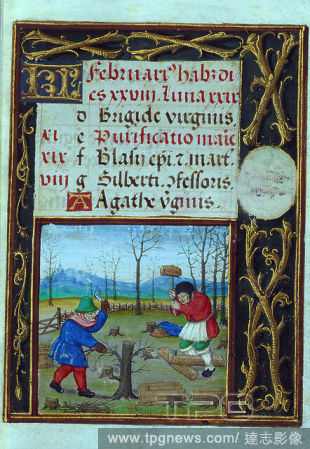 KL Februari' habz di
es xxviii. Luna xxix
d Brigide virginis.
xi e Purificatio marie
xix f Blasij epi. z. mart.
viij g Gilberti. ꝯfessoris.
A Agathe vginis.
TPG
www.tpgnews.com/ 達志影像